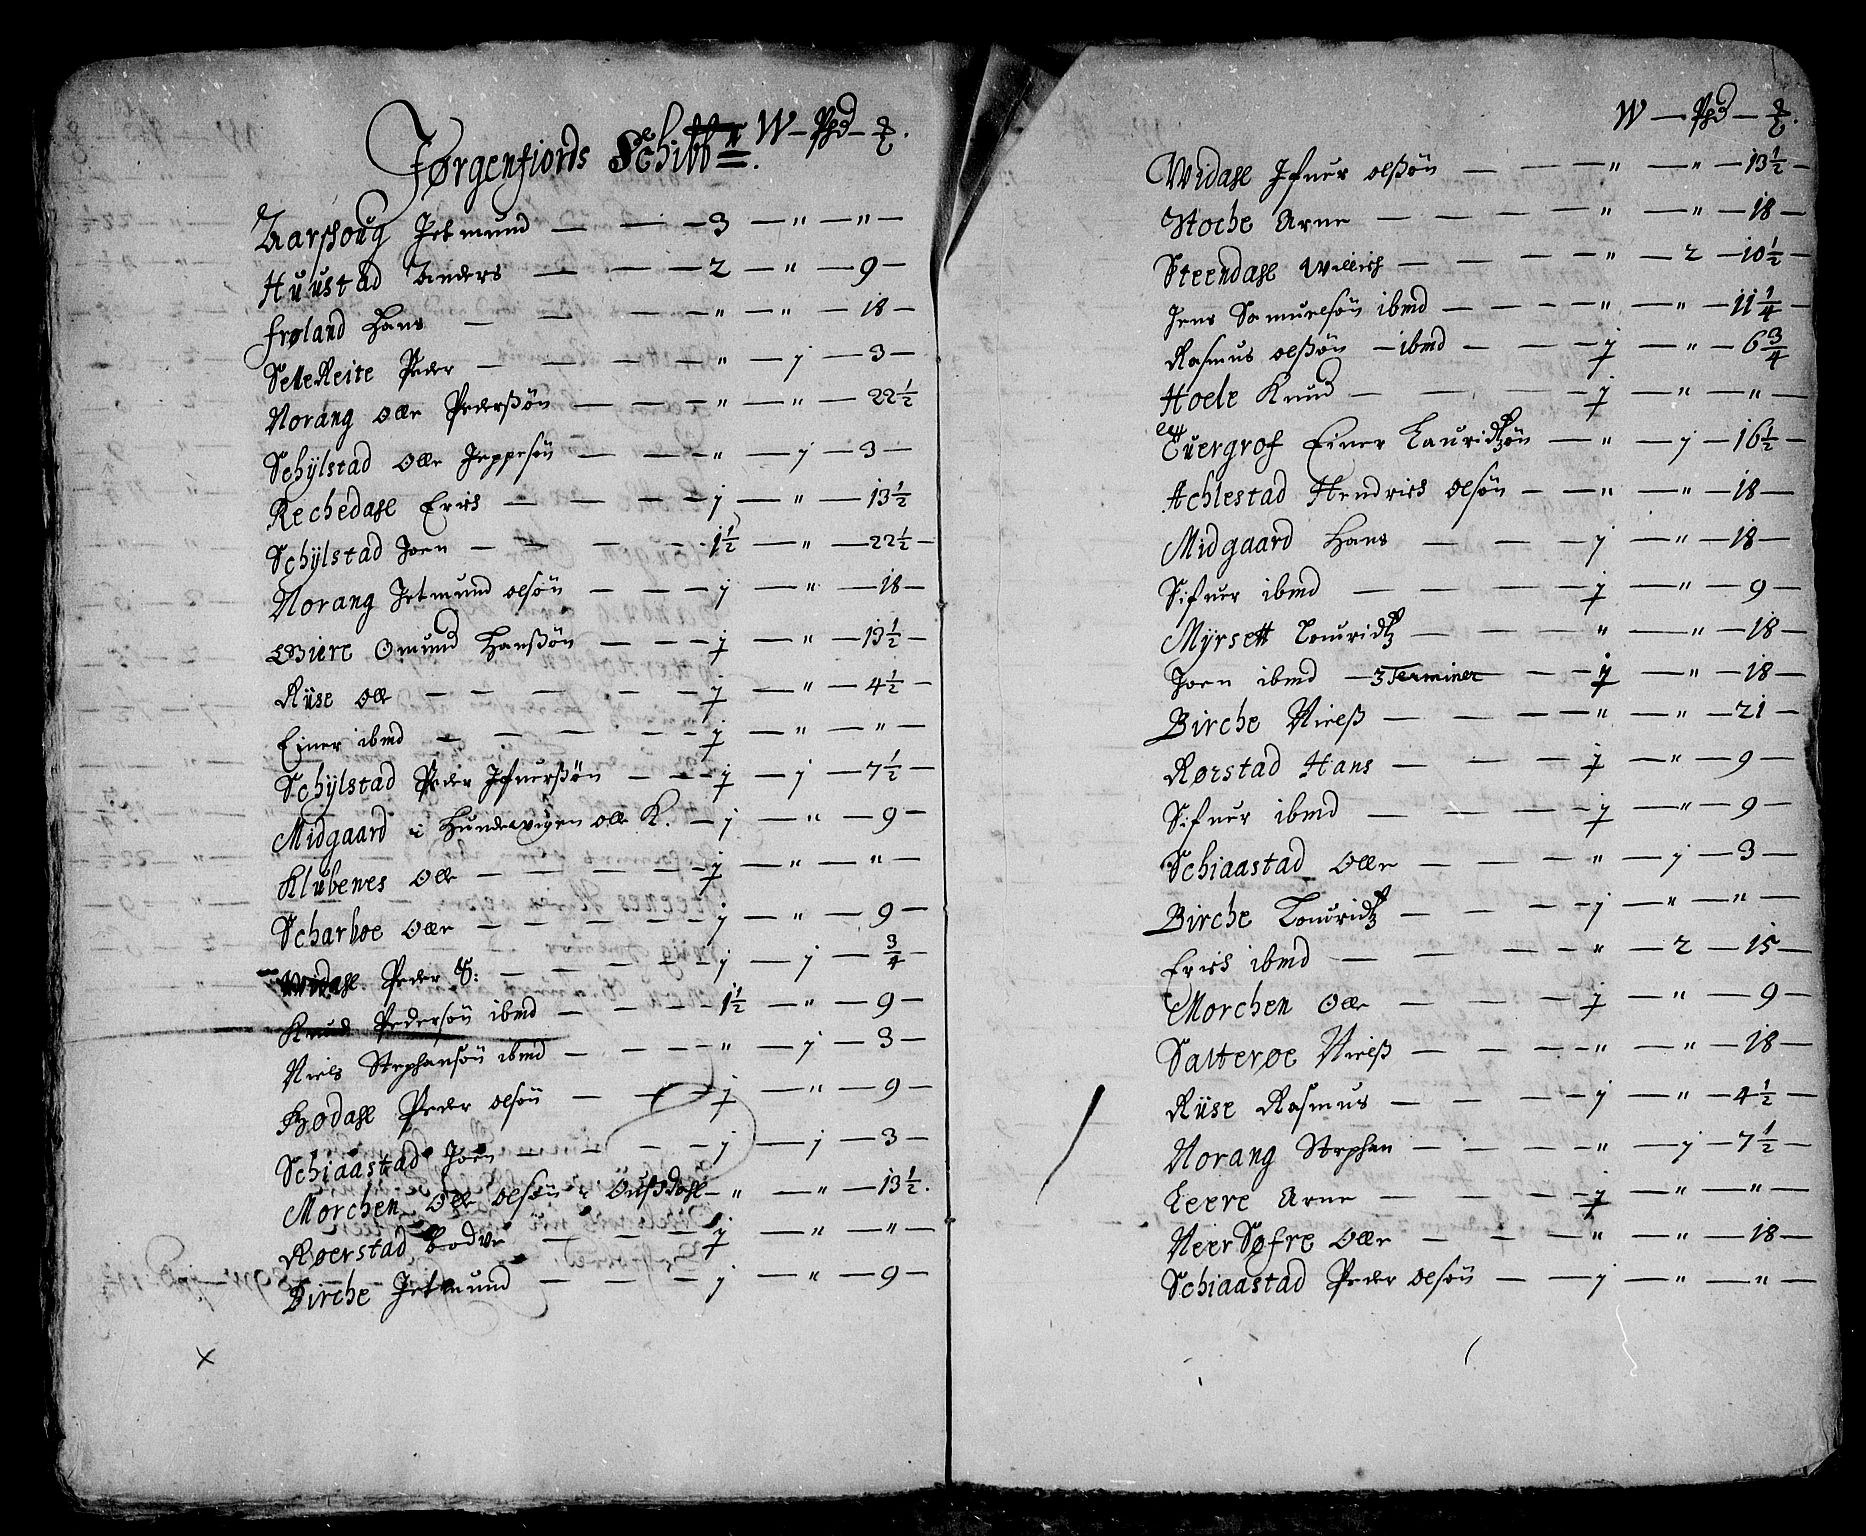 Jørgenfiords Schibb: W — Phd — ℔.
Aarschoug Jetmund — — — 3 — " — " —
Huustad Anders — — — 2 — " — 9 —
Frøland Hans — — — " — " — 18 —
SelleReite Peder — — — " — j — 3 —
Norang Olle Pederßøn — — — " — " — 22½
Schÿlstad Olle Jeppesøn — — — " — j — 3 —
Rechedahl Erich — — — j — " — 13½
Schÿlstad Joen — — — 1½ — " — 22½ —
Norang Jetmund olsøn — — — j — " — 18 —
Giere Omund Hanßøn — — — j — " — 13½ —
Riise Olle — — — j — " — 4½ —
Einer ibmd — — — j — " — " —
Schÿlstad Peder Jfuerßøn — — — j — j — 7½ —
Midgaard i Hundeuigen olle K. — j — " — 9 —
Klubenes Olle — — — j — " — " —
Scharboe Olle — — — j — " — 9 —
Widahl Peder S: — — — j — j — ¾ —
Knud Pedersøn ibmd — — — 1½ — " — 9 —
Niels Stephansøn ibmd — — — " — j — 3 —
Bødahl Peder olsøn — — — j — " — 9 —
Schiaastad Joen — — — j — j — 3 —
Morchen Olle olsøn i Oußdahl — " — " — 13½.
Røerstad Bodve — — — j — " — " —
Birche Jetmund — — — j — " — 9 —
W — Phd — ℔.
Widahl Jfuer olßøn — — — " — " — 13½ —
Stoche Arne — — — " — " — 18 —
Steendahl Willich — — — " — 2 — 10½ —
Jens Samuelsøn ibmd — — — " — " — 11¼ —
Rasmus olßøn — ibmd — — — j — " — 6¾
Hoele Knud — — — j — " — " —
Euergrof Einer Lauridtzøn — " — j — 16½ —
Achlestad Hendrich olsøn — — " — " — 18 —
Midgaard Hans — — — j — " — 18 —
Sifuer ibmd — — — j — " — 9 —
Mÿrsett Lauridtz — — — " — " — 18 —
Joen ibmd — 3 Terminer — — j — " — 18 —
Birche Nielß — — — " — " — 21 —
Rørstad Hans — — — j — " — 9 —
Sifuer ibmd — — — j — " — 9 —
Schiaastad Olle — — — " — j — 3 —
Birche Lauridtz — — — j — " — " —
Erich ibmd — — — " — 2 — 15 —
Morchen Olle — — — j — " — 9 —
Satterøe Nielß — — — " — " — 18 —
Riise Rasmus — — — j — " — 4½ —
Norang Stephen — — — " — j — 7½ —
Leere Arne — — — j — " — " —
NeerSøfre Olle — — — " — " — 18 —
Schiaastad Peder olsøn — — j — " — " —